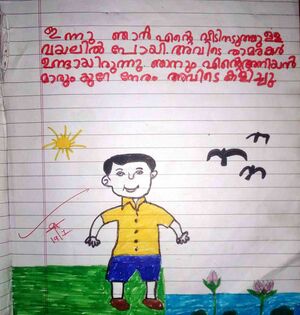 ഇന്നു ഞാൻ എന്റെ വീടിനടുത്തുള്ള
വയലിൽ പോയി. അവിടെ താമരകൾ
ഉണ്ടായിരുന്നു. ഞാനും എന്റെ അനിയൻ
മാരും കുറേ നേരം അവിടെ കളിച്ചു.
19/1